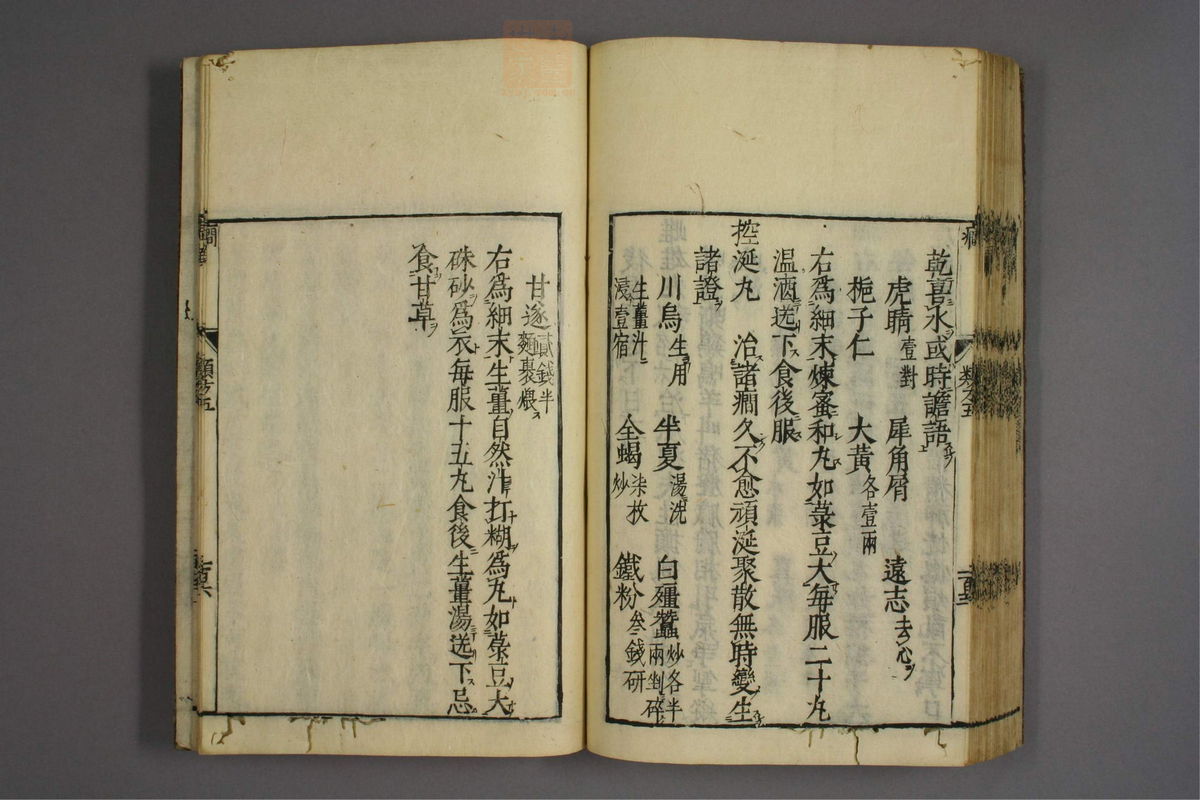 乾喜水或時譫語
虎睛壹對 犀角屑 遠志去心
梔子仁 大黃各壹兩
右爲細末煉蜜和丸如菉豆大每服二十丸
温酒送下食後服
控涎丸 治諸癎久不愈頑涎聚散無時變生
諸證
川烏生用 半夏湯洗 白殭蠶炒各半兩剉碎
生薑汁浸壹宿 全蝎炒柒枚 鐵粉叁錢研
甘遂貳錢半麵裹煨
右爲細末生薑自然汁打糊爲丸如菉豆大
硃砂爲衣每服十五丸食後生薑湯送下忌
食甘草